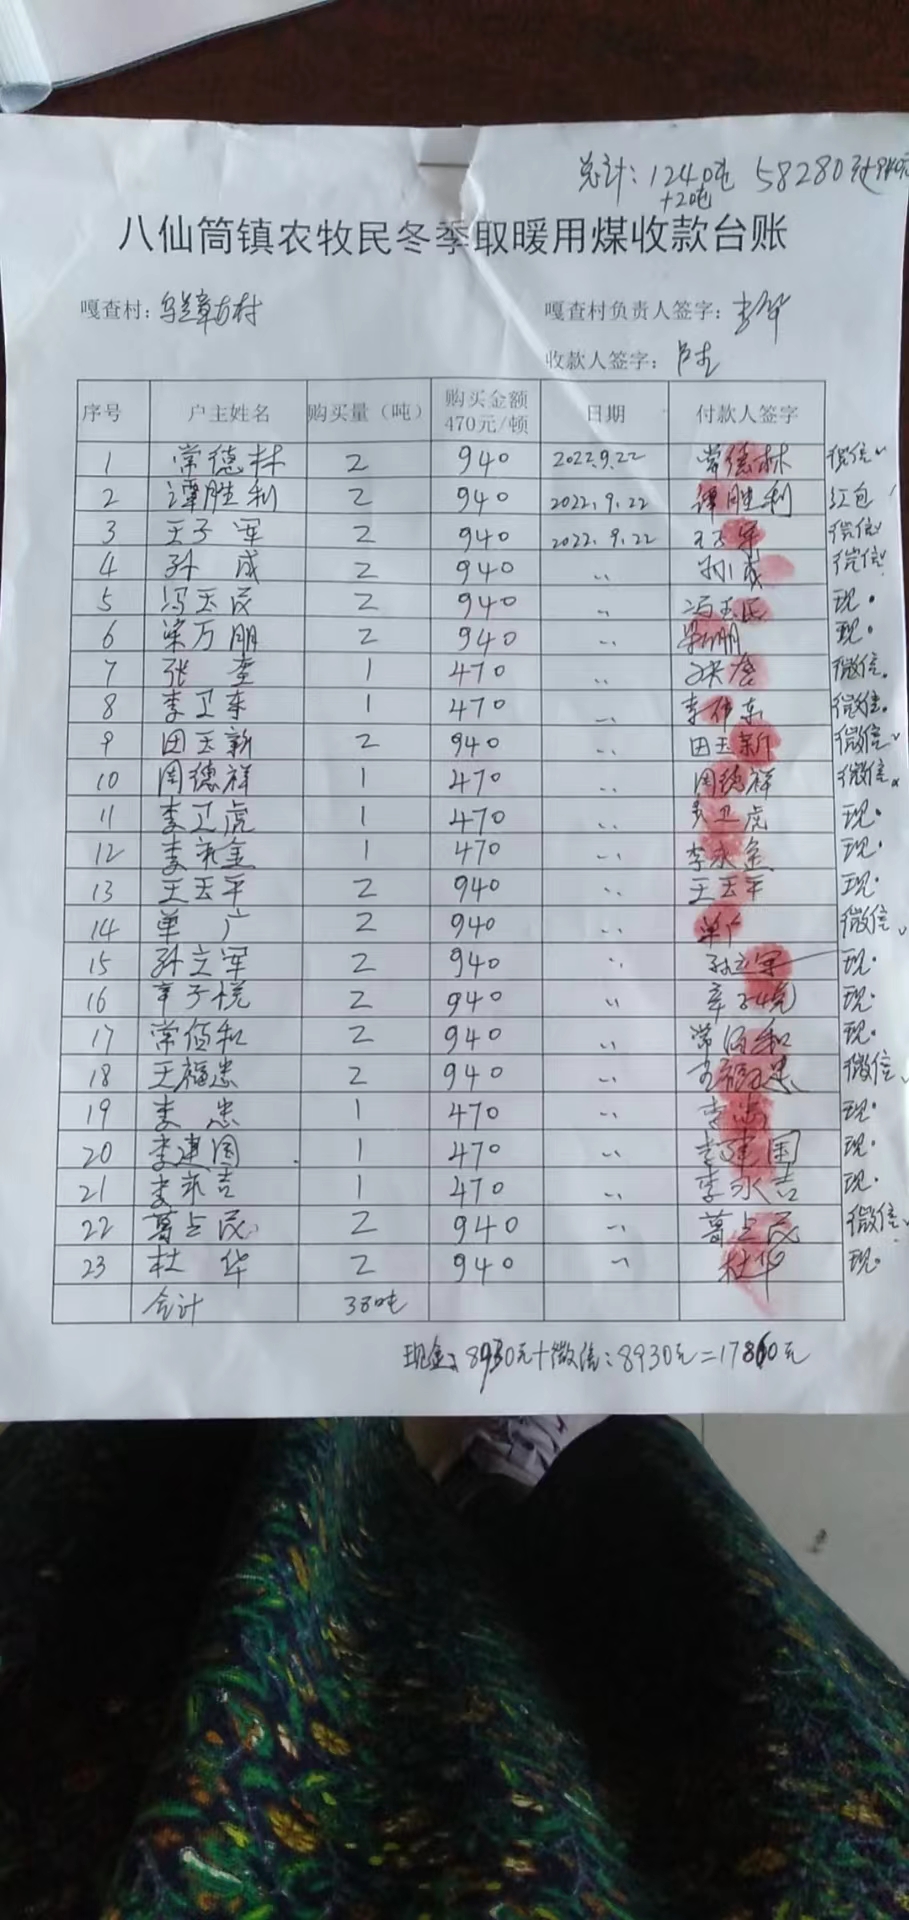 总计：124吨 58280元
+2吨
八仙筒镇农牧民冬季取暖用煤收款台账
嘎查村： 嘎查村负责人签字：李华
收款人签字：
序号 户主姓名 购买量（吨） 购买金额 470元/顿 日期 付款人签字
1 常德林 2 940 2022.9.22 常德林 微信
2 谭胜利 2 940 2022.9.22 谭胜利 红包
3 王子军 2 940 2022.9.22 王子军 微信
4 孙成 2 940 〃 孙成 微信
5 冯玉民 2 940 〃 冯玉民 现
6 梁万朋 2 940 〃 梁万朋 现
7 张奎 1 470 〃 张奎 微信
8 李卫东 1 470 〃 李伟东 微信
9 田玉新 2 940 〃 田玉新 微信
10 周德祥 1 470 〃 周德祥 微信
11 李卫虎 1 470 〃 李卫虎 现
12 李永金 1 470 〃 李永金 现
13 王玉平 2 940 〃 王玉平 现
14 单广 2 940 〃 单广 微信
15 孙立军 2 940 〃 孙立军 现
16 辛子悦 2 940 〃 现
17 常值和 2 940 〃 现
18 王福忠 2 940 〃 王福忠 微信
19 李忠 1 470 〃 李忠 现
20 李建国 1 470 〃 李建国 现
21 李永吉 1 470 〃 李永吉 现
22 葛占民 2 940 〃 葛占民 微信
23 杜华 2 940 〃 杜华 现
合计 38吨
现金：8930元+微信：8930元=17860元